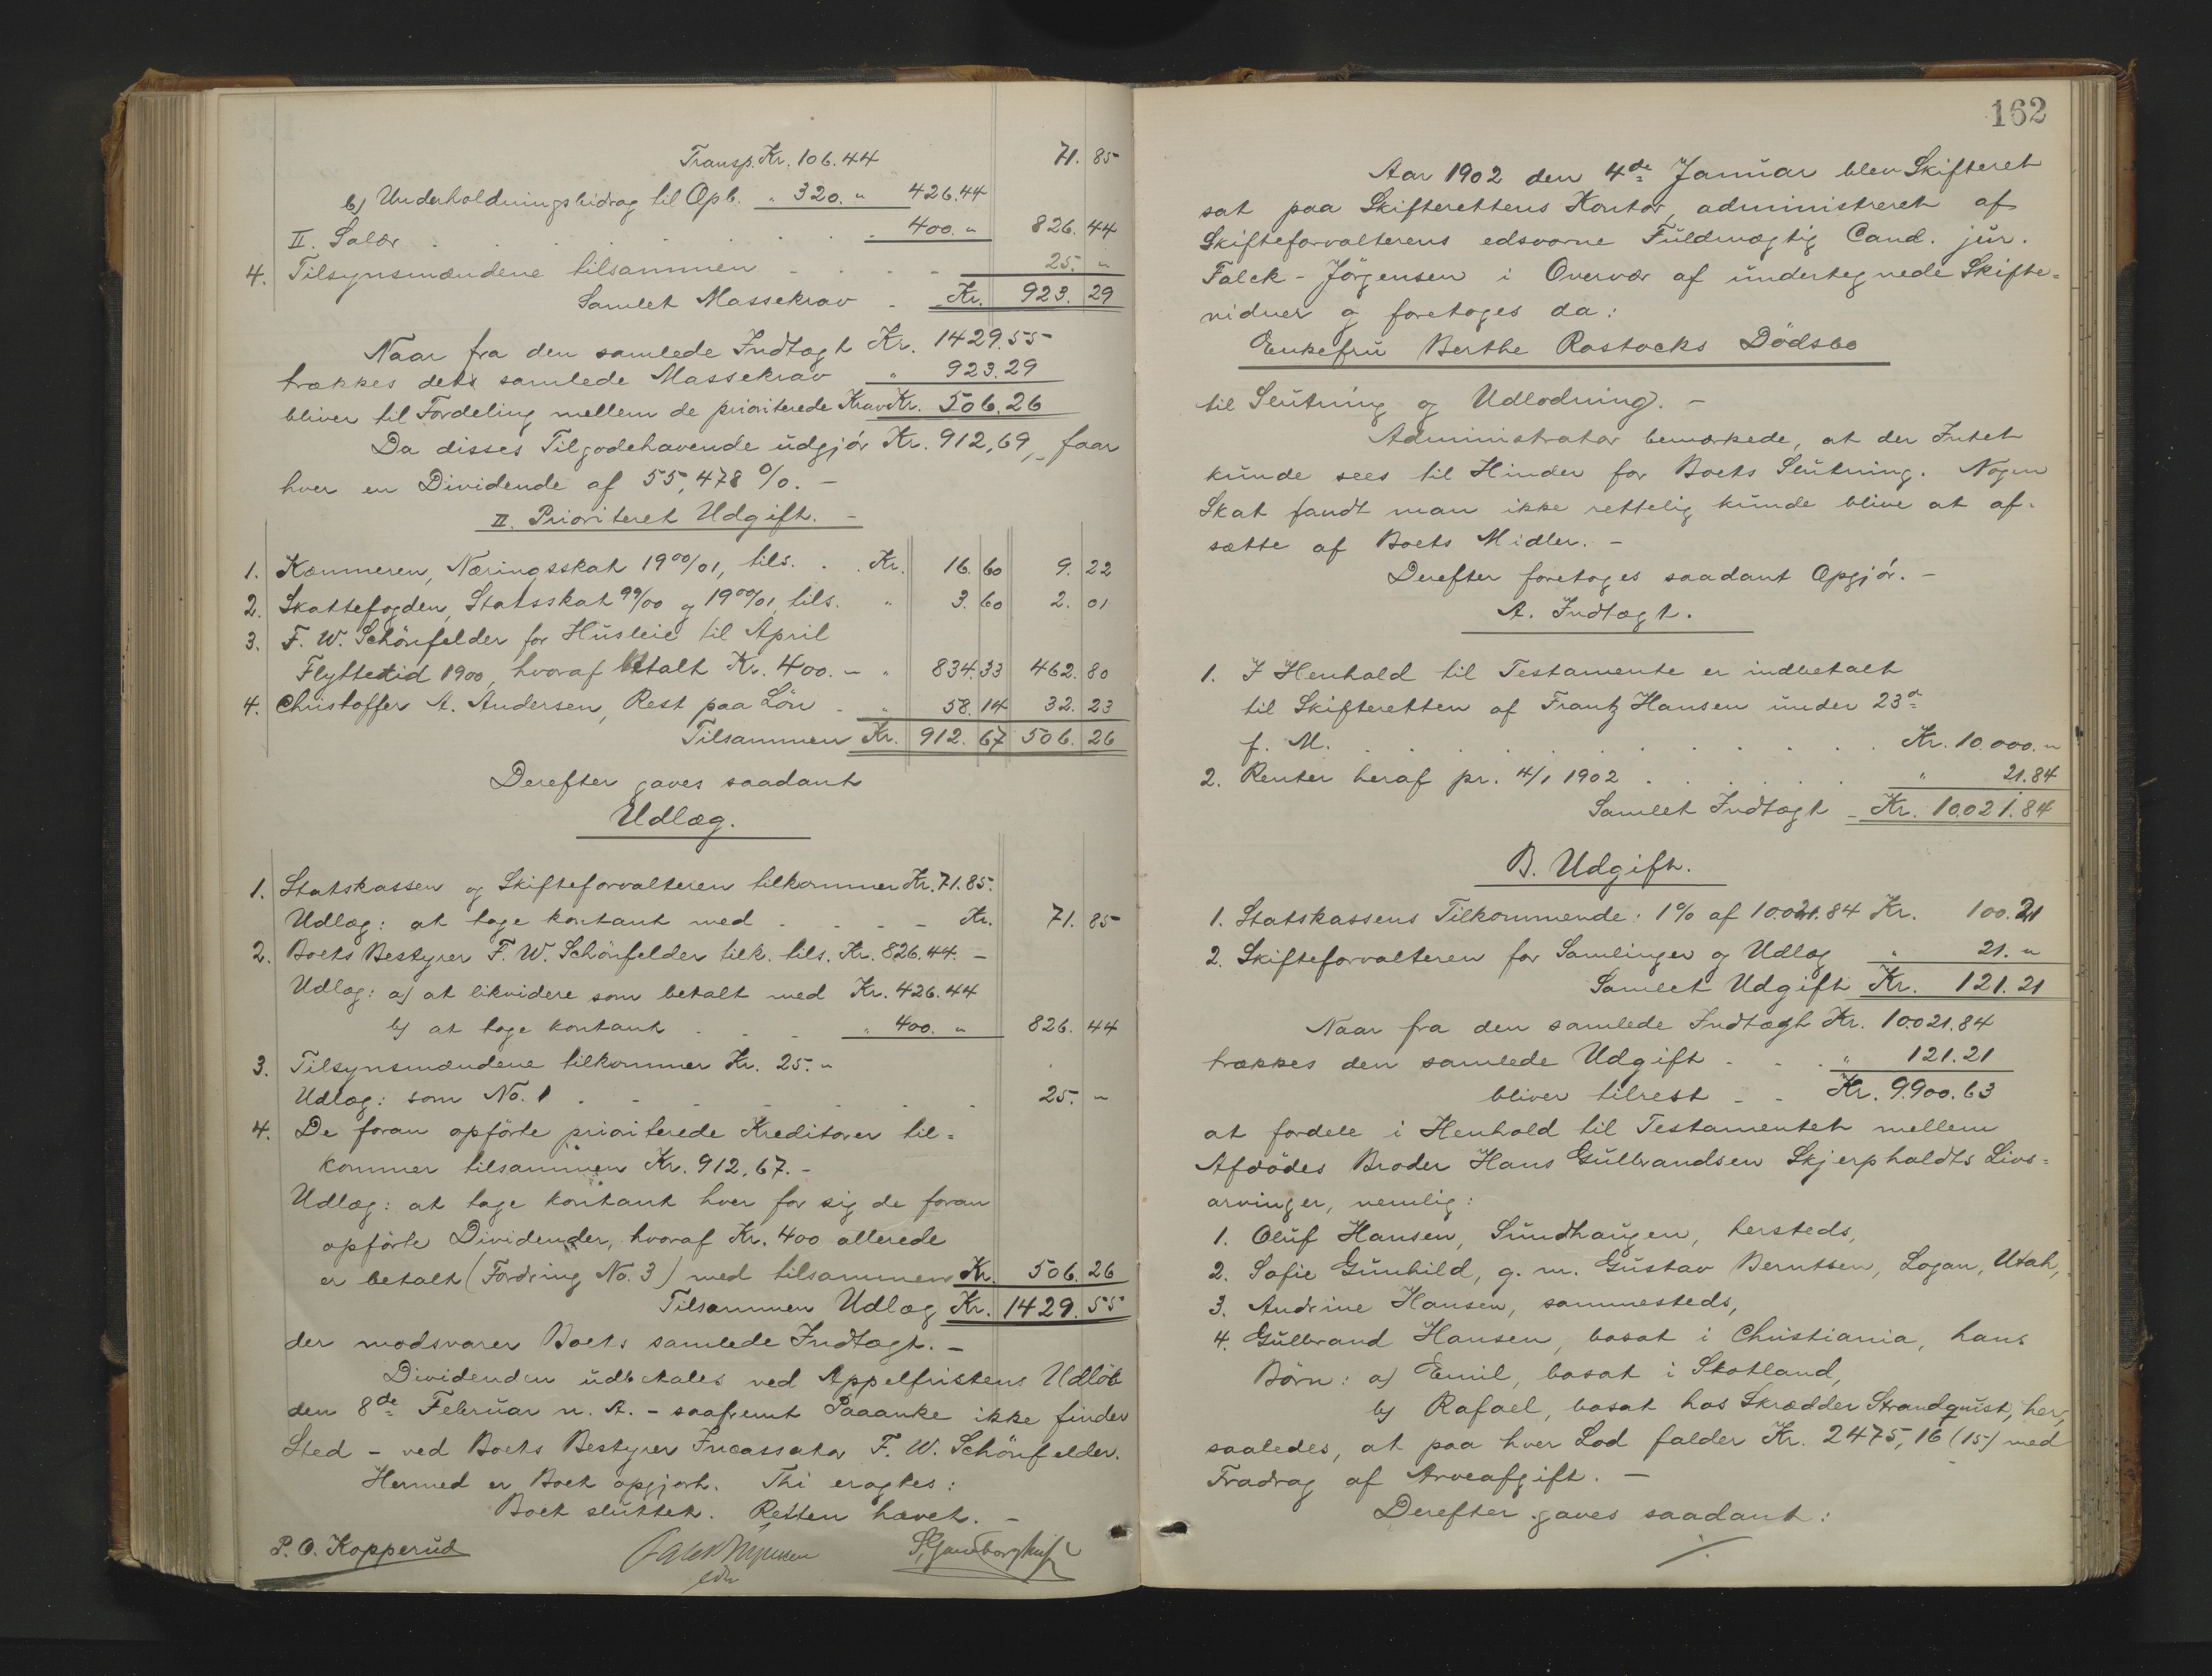 Transp. Kr. 106.44 71. 85
b) Underholdningsbidrag til Opb. „ 320. „ 426.44
II. Salær . . . . . . . . 400. „ 826. 44
4. Tilsynsmændene tilsammen - . . . - 25. „
Samlet Massekrav - Kr. 923. 29
Naar fra den samlede Indtægt Kr. 1429.55
trækkes dets samlede Massekrav „ 923.29
bliver til Fordeling mellem de prioriterede Krav Kr. 506.26
Da disses Tilgodehavende udgjør Kr. 912,69, - faar
hver en Dividende af 55,478 %. -
II. Prioriteret Udgift. -
1. Kæmneren, Næringsskat 1900/01, tils. . . Kr. 16. 60 9. 22
2. Skattefogden, Statsskat 99/00 og 1900/01, tils. „ 3. 60 2. 01
3. F. W. Schönfelder for Husleie til April
Flyttetid 1900, hvoraf betalt Kr. 400. - „ 834. 33 462. 80
4. Christoffer A. Andersen, Rest paa Løn - „ 58. 14 32. 23
Tilsammen Kr. 912. 67 506. 26
Derefter gaves saadant
Udlæg.
1. Statskassen og Skifteforvalteren tilkommer Kr. 71.85.
Udlæg: at tage kontant med - - - - Kr. 71. 85
2. Boets Bestyrer F. W. Schönfelder tilk. tils. Kr. 826.44. -
Udlæg: a) at likvidere som betalt med Kr. 426.44
b) at tage kontant . . - „ 400. „ 826. 44
3. Tilsynsmændene tilkommer Kr. 25. „
Udlæg: som No. 1 . - - - - . . - 25. „
4. De foran opførte prioriterede Kreditorer til=
kommer tilsammen Kr. 912,67. -
Udlæg: at tage kontant hver for sig de foran
opførte Dividender, hvoraf Kr. 400 allerede
er betalt (Fordring No. 3) med tilsammen Kr. 506. 26
Tilsammen Udlæg Kr. 1429. 55
der modsvarer Boets samlede Indtægt. -
Dividenden udbetales ved Appelfristens Udløb
den 8de Februar n. A. - saafremt Paaanke ikke finder
Sted - ved Boets Bestyrer Incassator F. W. Schönfelder.
Hermed er Boet opgjort. Thi eragtes:
Boet sluttet. Retten hævet. -
P. O. Kopperud
162
Aar 1902 den 4de Januar blev Skifteret
sat paa Skifterettens Kontor, administreret af
Skifteforvalterens edsvorne Fuldmægtig Cand. jur.
Falck-Jørgensen i Overvær af undertegnede Skifte=
vidner og foretoges da:
Enkefru Berthe Rostocks Dødsbo
til Slutning og Udlodning. -
Administrator bemærkede, at der Intet
kunde sees til Hinder for Boets Slutning. Nogen
Skat fandt man ikke rettelig kunde blive at af-
sætte af Boets Midler. -
Derefter foretoges saadant Opgjør. -
A. Indtægt.
1. I Henhold til Testamente er indbetalt
til Skifteretten af Frantz Hansen under 23d
f. M. . . . . . . . . . . . . Kr. 10.000. „
2. Renter heraf pr. 4/1 1902 . . . . . . „ 21.84
Samlet Indtægt - Kr. 10.021.84
B. Udgift.
1. Statskassens Tilkommende: 1% af 10.021.84 Kr. 100.21
2. Skifteforvalteren for Samlinger og Udlæg „ 21. „
Samlet Udgift Kr. 121.21
Naar fra den samlede Indtægt Kr. 10.021.84
trækkes den samlede Udgift - . . „ 121.21
bliver tilrest - - Kr. 9.900.63
at fordele i Henhold til Testamentet mellem
Afdødes Broder Hans Gulbrandsen Skjerpholdts Livs=
arvinger, nemlig:
1. Oluf Hansen, Sundhaugen, hersteds,
2. Sofie Gunhild, g. m. Gustav Berntsen, Logan, Utah,
3. Andrine Hansen, sammesteds,
4. Gulbrand Hansen, bosat i Christiania, hans
Børn: a) Emil, bosat i Skotland,
b) Rafael, bosat hos Skrædder Strandquist, her,
saaledes, at paa hver Lod falder Kr. 2475,16 (15) med
Fradrag af Arveafgift. -
Derefter gaves saadant:
./.